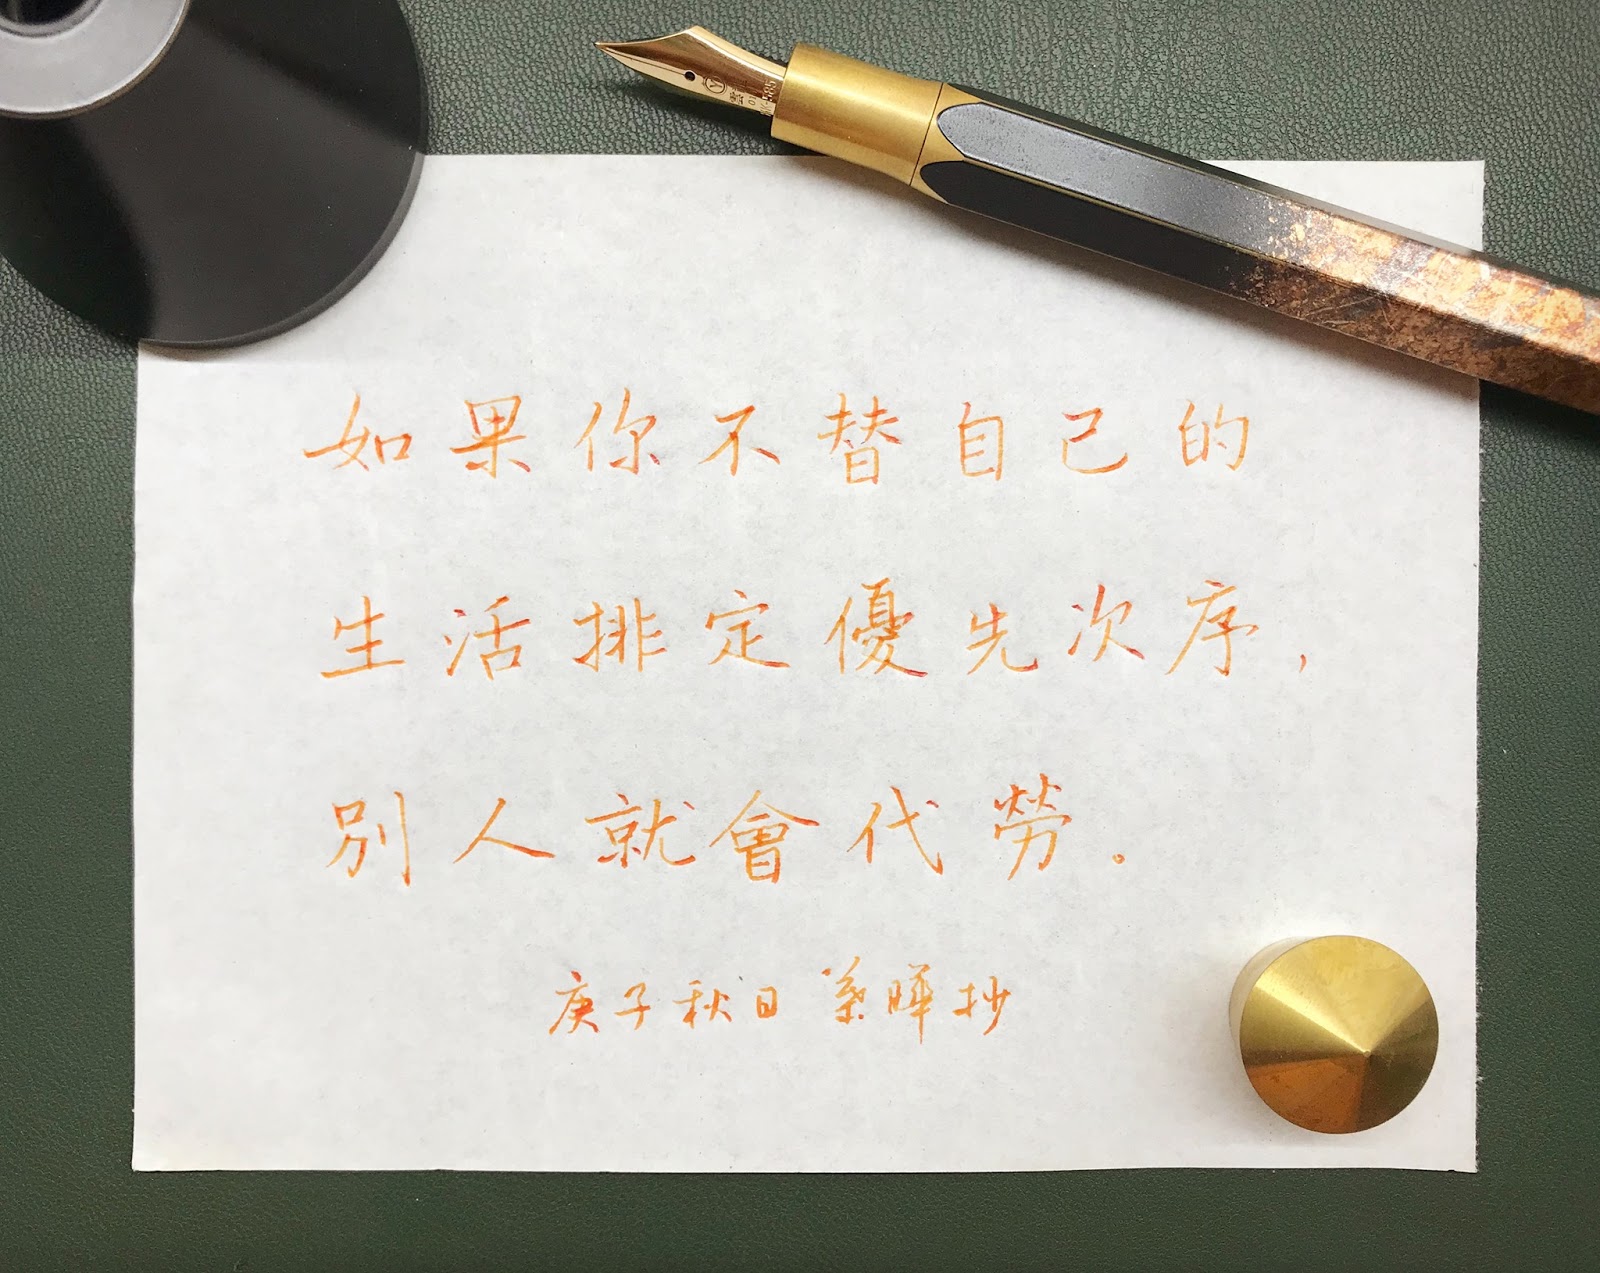 如果你不替自己的
生活排定優先次序,
別人就會代勞。
庚子秋日 葉暐抄